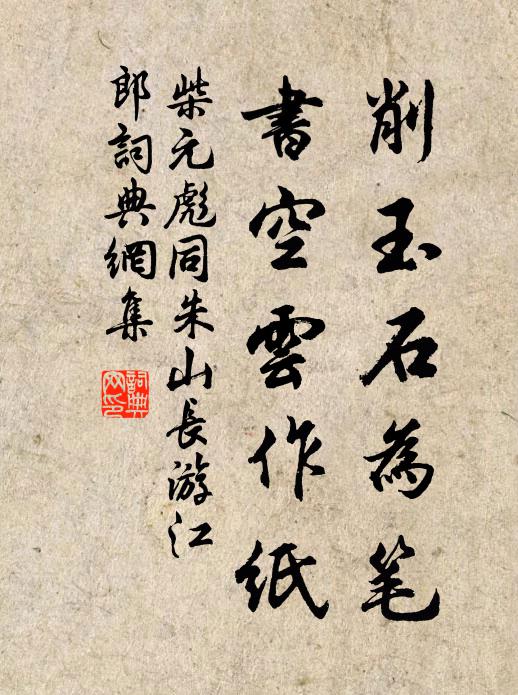 削玉石為笔
書空雲作紙
柴元彪同朱山長游江
郎詞典網集
詞典网印